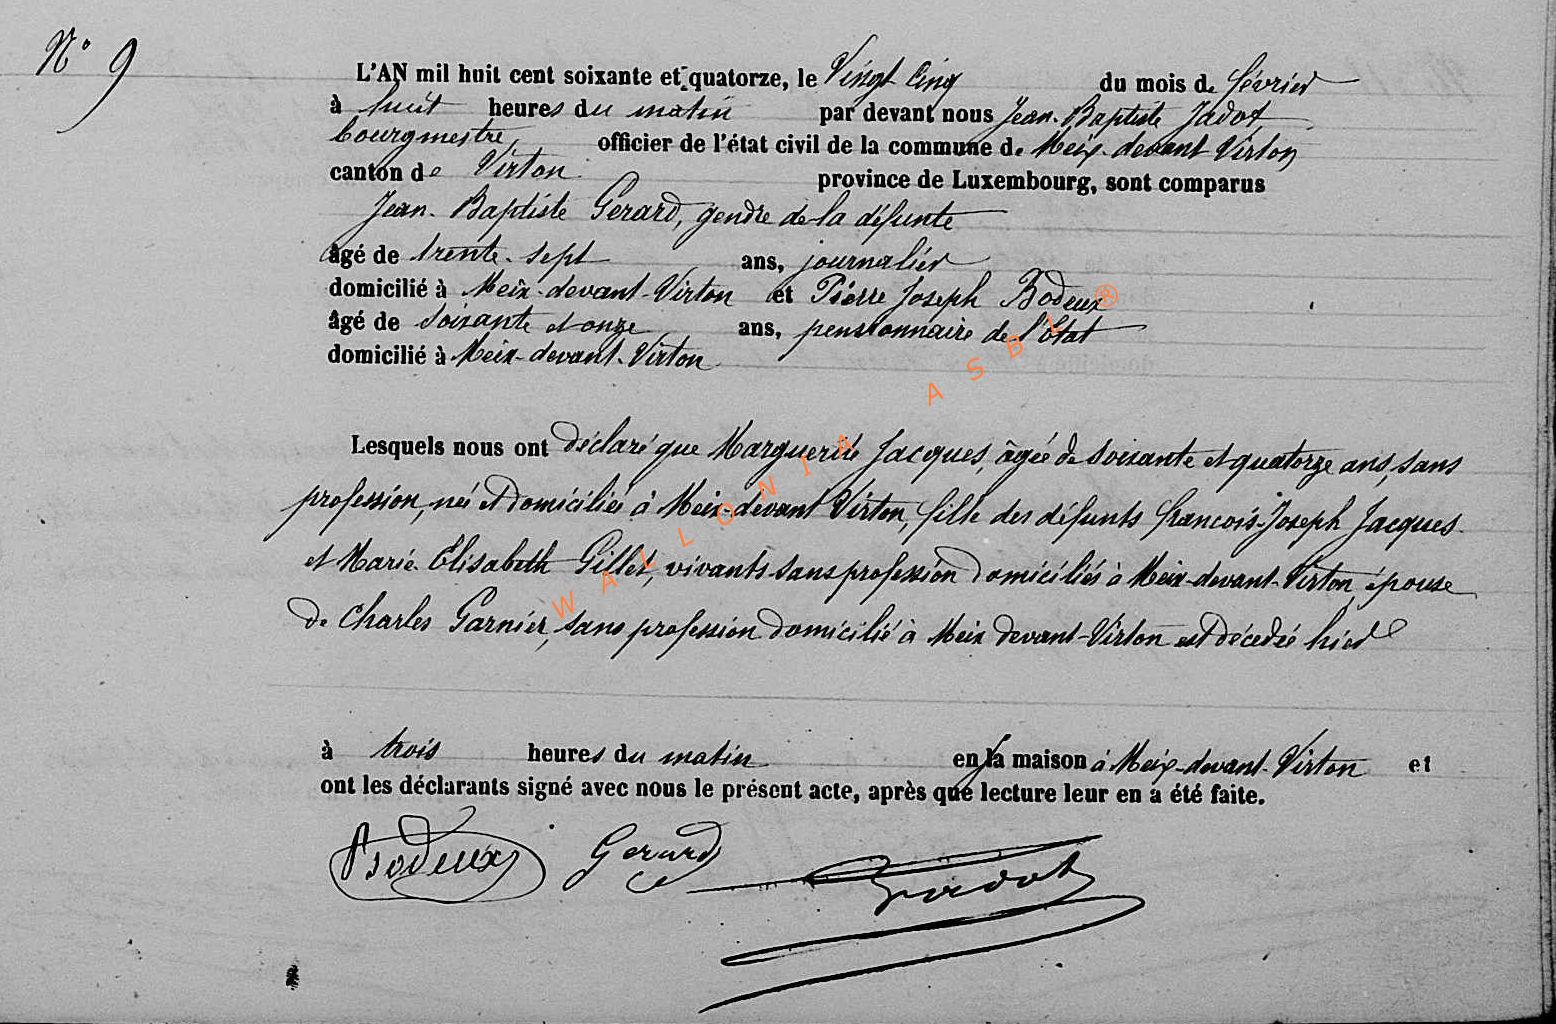 N° 9
L'AN mil huit cent soixante et quatorze, le Vingt Cinq du mois de février
à huit heures du matin par devant nous Jean-Baptiste Jadot
bourgmestre, officier de l'état civil de la commune de Meix-devant Virton
canton de Virton province de Luxembourg, sont comparus
Jean-Baptiste Gerard, gendre de la défunte
âgé de trente-sept ans, journalier
domicilié à Meix-devant-Virton et Pierre Joseph Bodeux
âgé de soixante et onze ans, pensionnaire de l'état
domicilié à Meix-devant-Virton
Lesquels nous ont déclaré que Marguerite Jacques, âgée de soixante et quatorze ans, sans
profession, née et domiciliée à Meix-devant Virton, fille des défunts francois-Joseph Jacques
et Marie Elisabeth Gillet, vivants sans profession domiciliés à Meix-devant-Virton, épouse
de Charles Garnier, sans profession domicilié à Meix devant-Virton est décedée hier
à trois heures du matin en sa maison à Meix-devant-Virton et
ont les déclarants signé avec nous le présent acte, après que lecture leur en a été faite.
Bodeux Gerard Jadot
WALLONIA ASBL ®